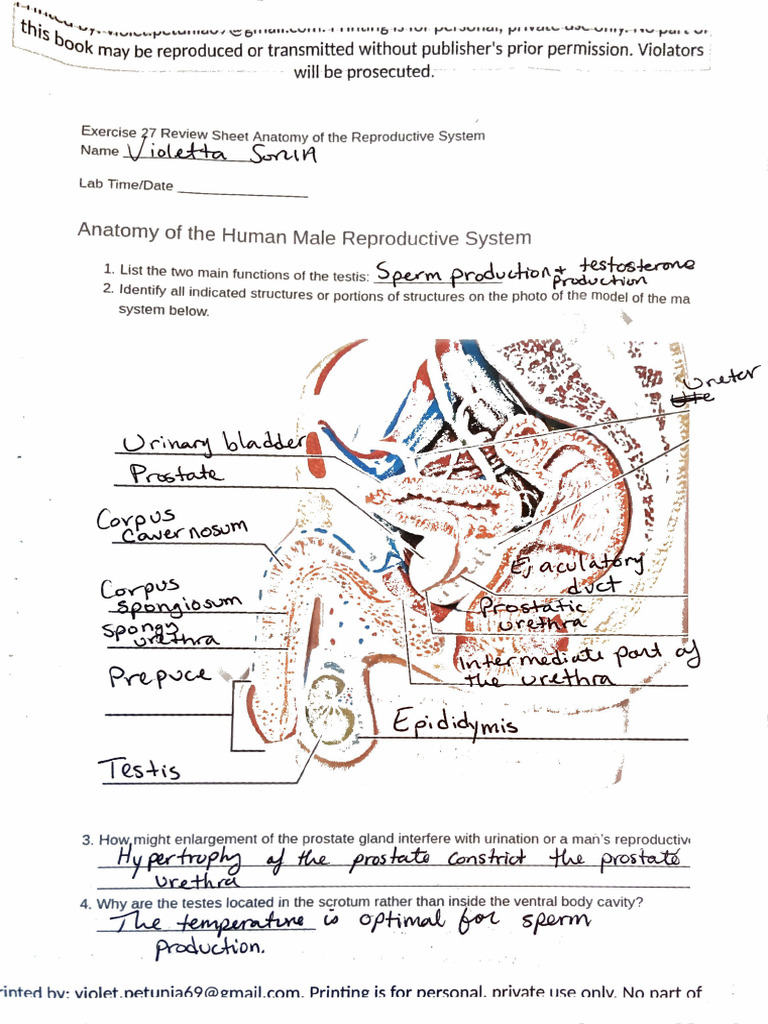 this book may be reproduced or transmitted without publisher's prior permission. Violators
will be prosecuted.
Exercise 27 Review Sheet Anatomy of the Reproductive System
Name Violetta
Lab Time/Date
Anatomy of the Human Male Reproductive System
1. List the two main functions of the testis: Sperm production + testosterone
production
2. Identify all indicated structures or portions of structures on the photo of the model of the ma
system below.
Ureter
Ute
Urinary bladder
Prostate
Corpus
Cavernosum
Ejaculatory
duct
Corpus
spongiosum
Prostatic
urethra
spongy
urethra
Intermediate part of
the urethra
Prepuce
Epididymis
Testis
3. How might enlargement of the prostate gland interfere with urination or a man's reproductive
Hypertrophy of the prostate constrict the prostate
urethra
4. Why are the testes located in the scrotum rather than inside the ventral body cavity?
The temperature is optimal for sperm
production.
rinted by: violet.petunia69@gmail.com. Printing is for personal, private use only. No part of